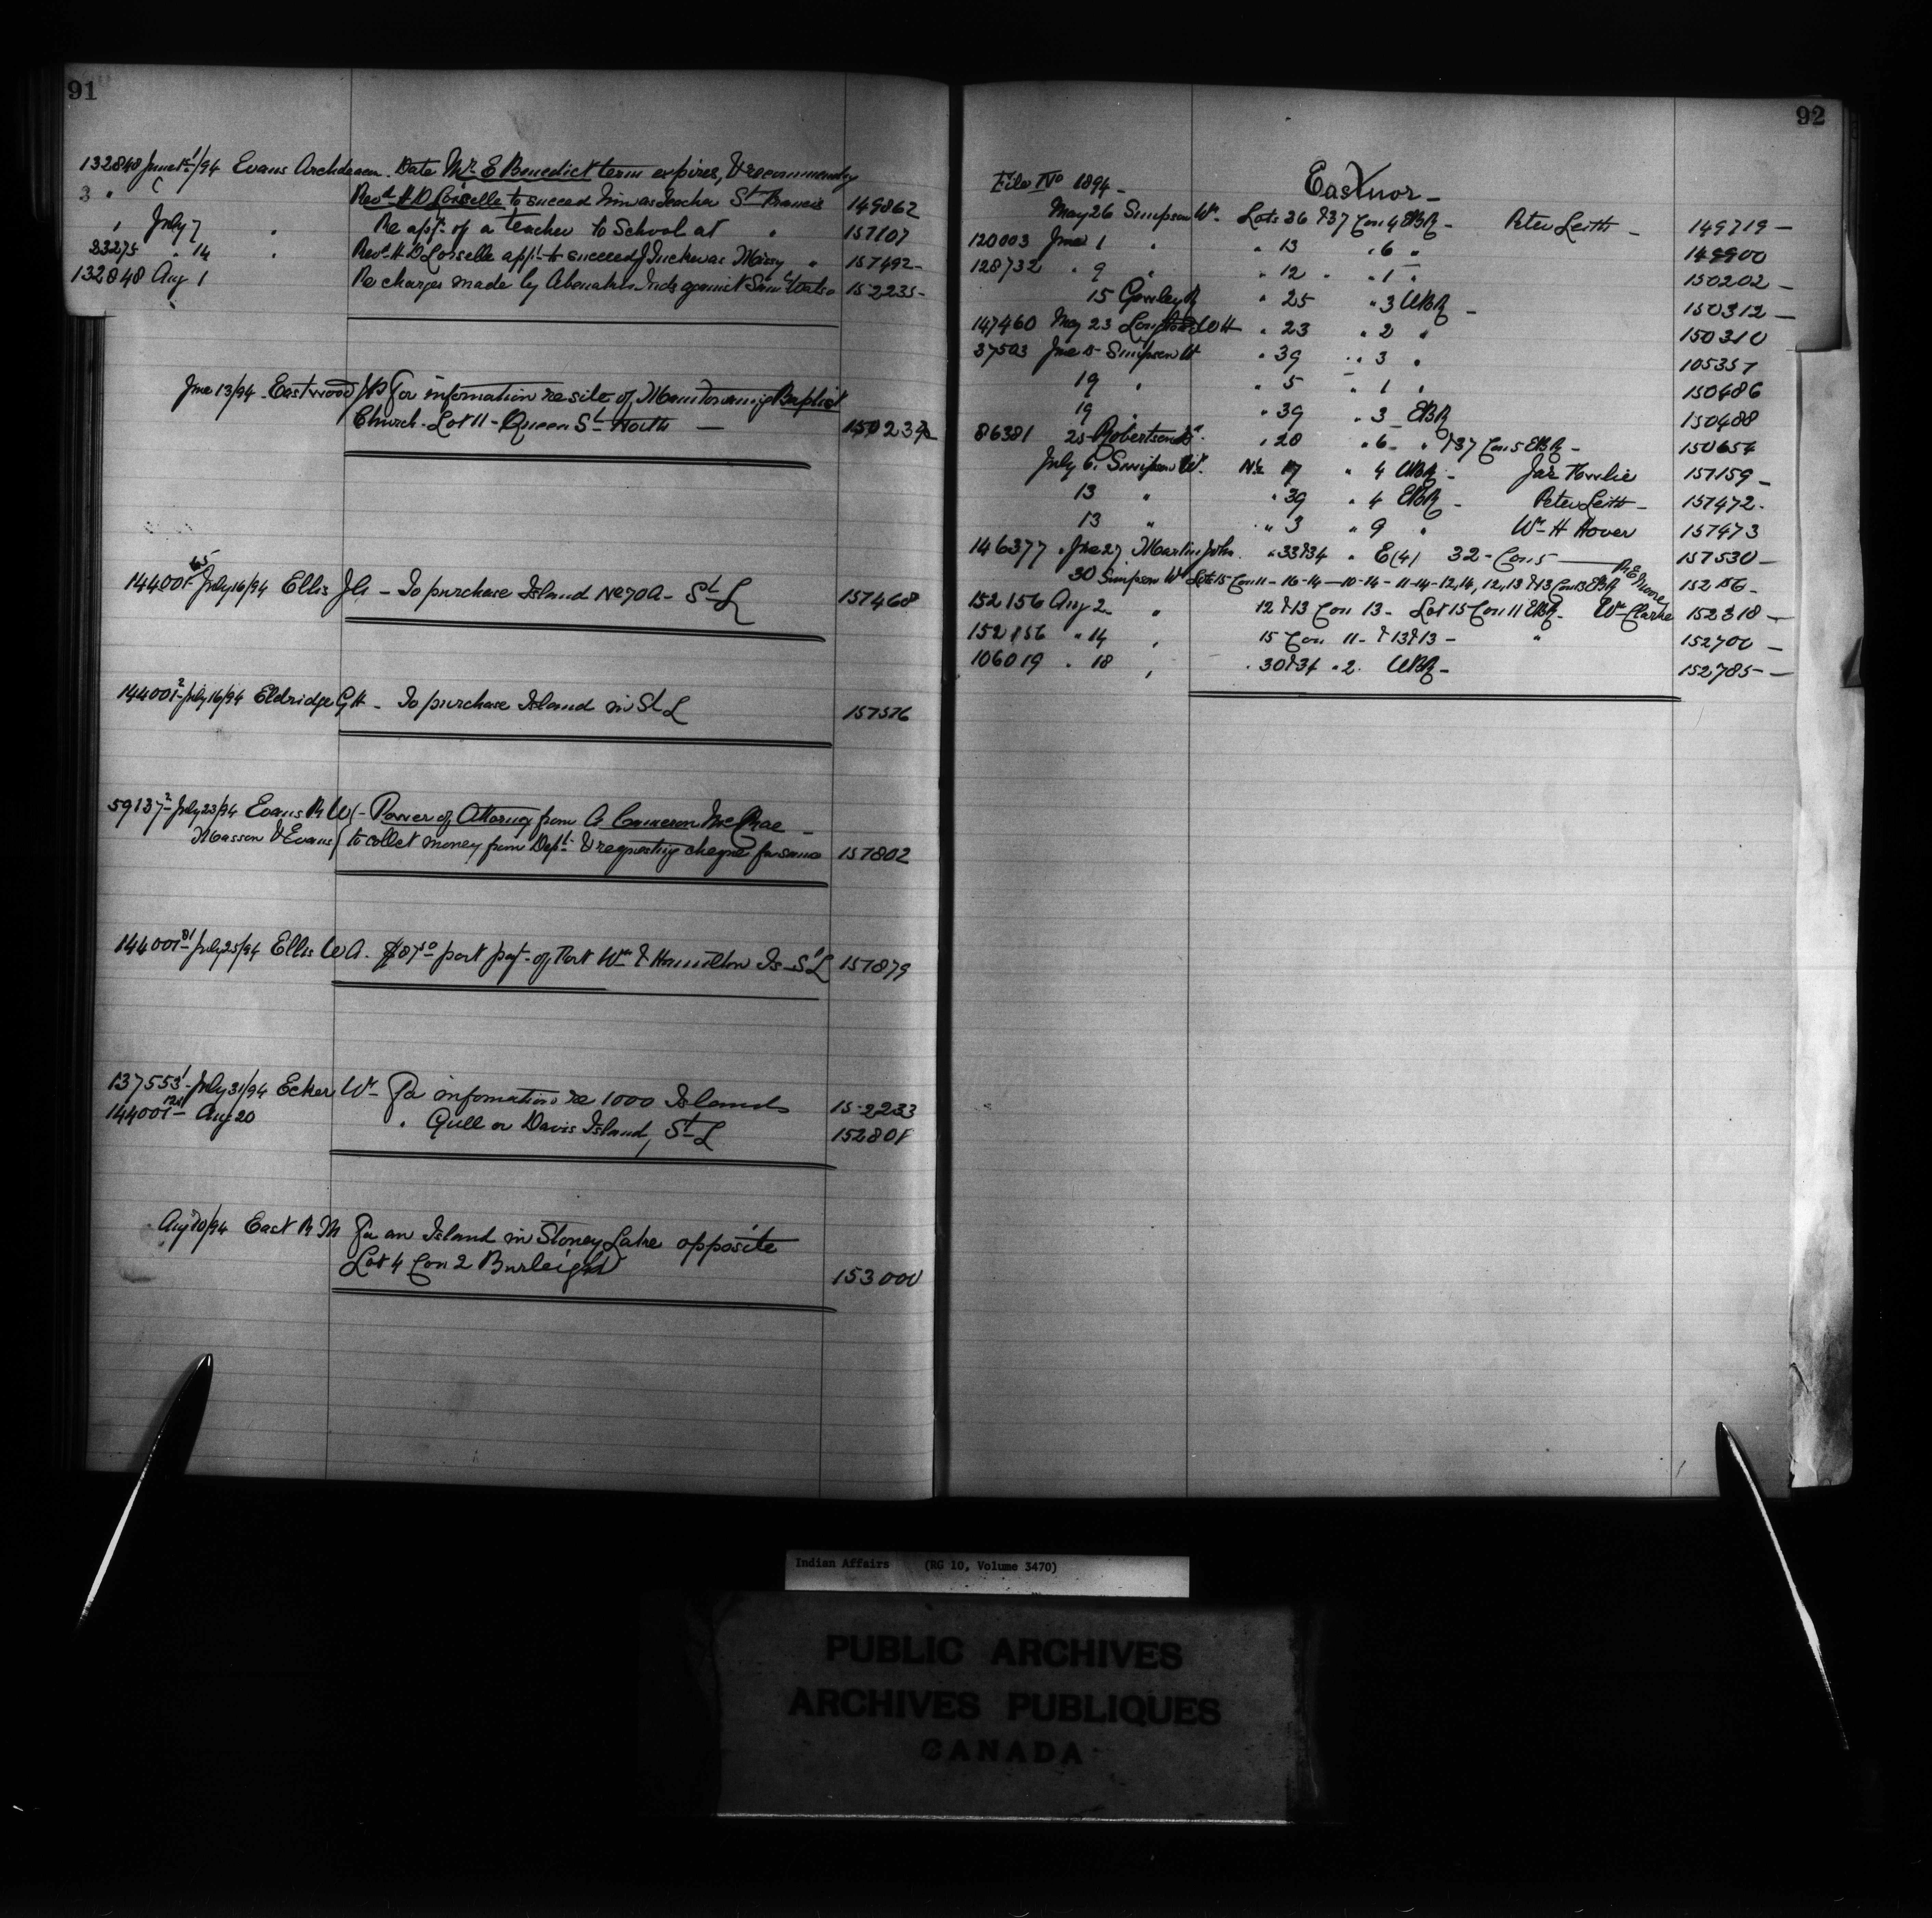 91
132848 June 1/94 Evans Archdeacon. Date Mr E Benedict term expires, & recommends
Revd H O Loiselle to succeed him as teacher St Francis 149862
" July 7 " Re appt. of a teacher to School at " 151107
23275 " 14 " Revd H O Loiselle appt. to succeed " 151492
132848 Aug 1 Re charges made by Abenakis Inds against 152235
June 13/94 Eastwood For information re site of Manitowaning Baptist
Church - Lot 11 - Queen St North — 150239
144001 65 July 16/94 Ellis J G - To purchase Island No 70A - St L 151468
144001 2 July 16/94 Eldridge G H - To purchase Island in St L 151516
59137 2 July 23/94 Evans R W - Power of Attorney from A Cameron McCrae -
Masson & Evans to collect money from Dept. & requesting cheque for same 151802
144001 81 July 25/94 Ellis W A. part pay- of Port Wm & Hamilton Is - St L 151879
137553 1 July 31/94 Ecker Wm For information re 1000 Islands 152233
144001 121 Aug 20 " Gull or Davis Island, St L 152801
Aug 20/94 East R M For an Island in Stoney Lake opposite
Lot 4 Con 2 Burleigh 153000
92
File No 1894 - Eastnor -
May 26 Simpson Wm Lots 36 & 37 Con 4 EBR - Peter Leith - 149719 -
120003 June 1 " " 13 " 6 " 149900
128732 " 9 " " 12 " " 1 " 150202 -
15 Gowley R " 25 " 3 WBR - 150312 -
147460 May 23 W H " 23 " 2 " 150310
37503 June 5 Simpson W " 39 " 3 " 105357
19 " " 5 " 1 " 150486
19 " " 39 " 3 EBR 150488
86381 25 Robertson " 20 " 6 " & 37 Con 5 EBR - 150654
July 6 Simpson W. N½ 17 " 4 WBR - Jas 151159 -
13 " " 39 " 4 EBR - Peter Leith - 151472 -
13 " " 3 " 9 " Wm H Hover 151473
146377 " June 27 Martin John " 33 & 34 " E(4) 32 - Con 5 — 151530 -
30 Simpson Wm Lots 15 Con 11 - 16-14 - 10-14 - 11-14 - 12,14, 12,13 & 13 Con 13 EBR 152156 -
152156 Aug 2 " 12 & 13 Con 13 - Lot 15 Con 11 EBR - Wm Clarke 152318 -
152156 " 14 " 15 Con 11 - & 13 & 13 - " 152700 -
106019 " 18 " " 30 & 34 " 2 " WBR - 152785 -
Indian Affairs (RG 10, Volume 3470)
PUBLIC ARCHIVES
ARCHIVES PUBLIQUES
CANADA